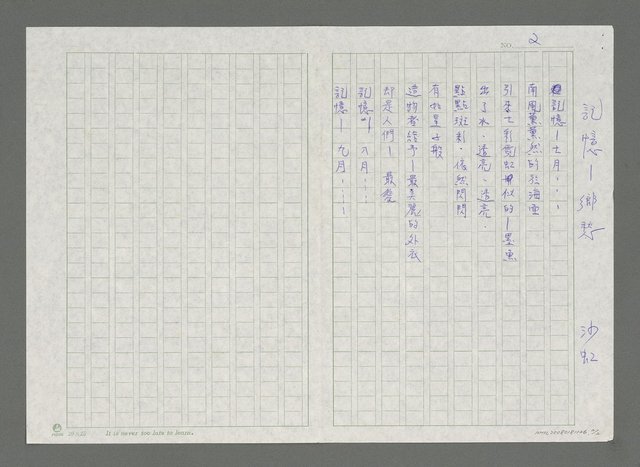 NO. 2
記憶—鄉愁 沙虹
記憶—七月....
南風薰薰然的
引來七彩霓虹似的—墨魚
出了水.透亮.透亮.
點點斑剝.依然閃閃
有如星子般
造物者給予—最美麗的外衣
卻是人們— 最愛
記憶— 八月....
記憶— 九月.....
It is never too late to learn.